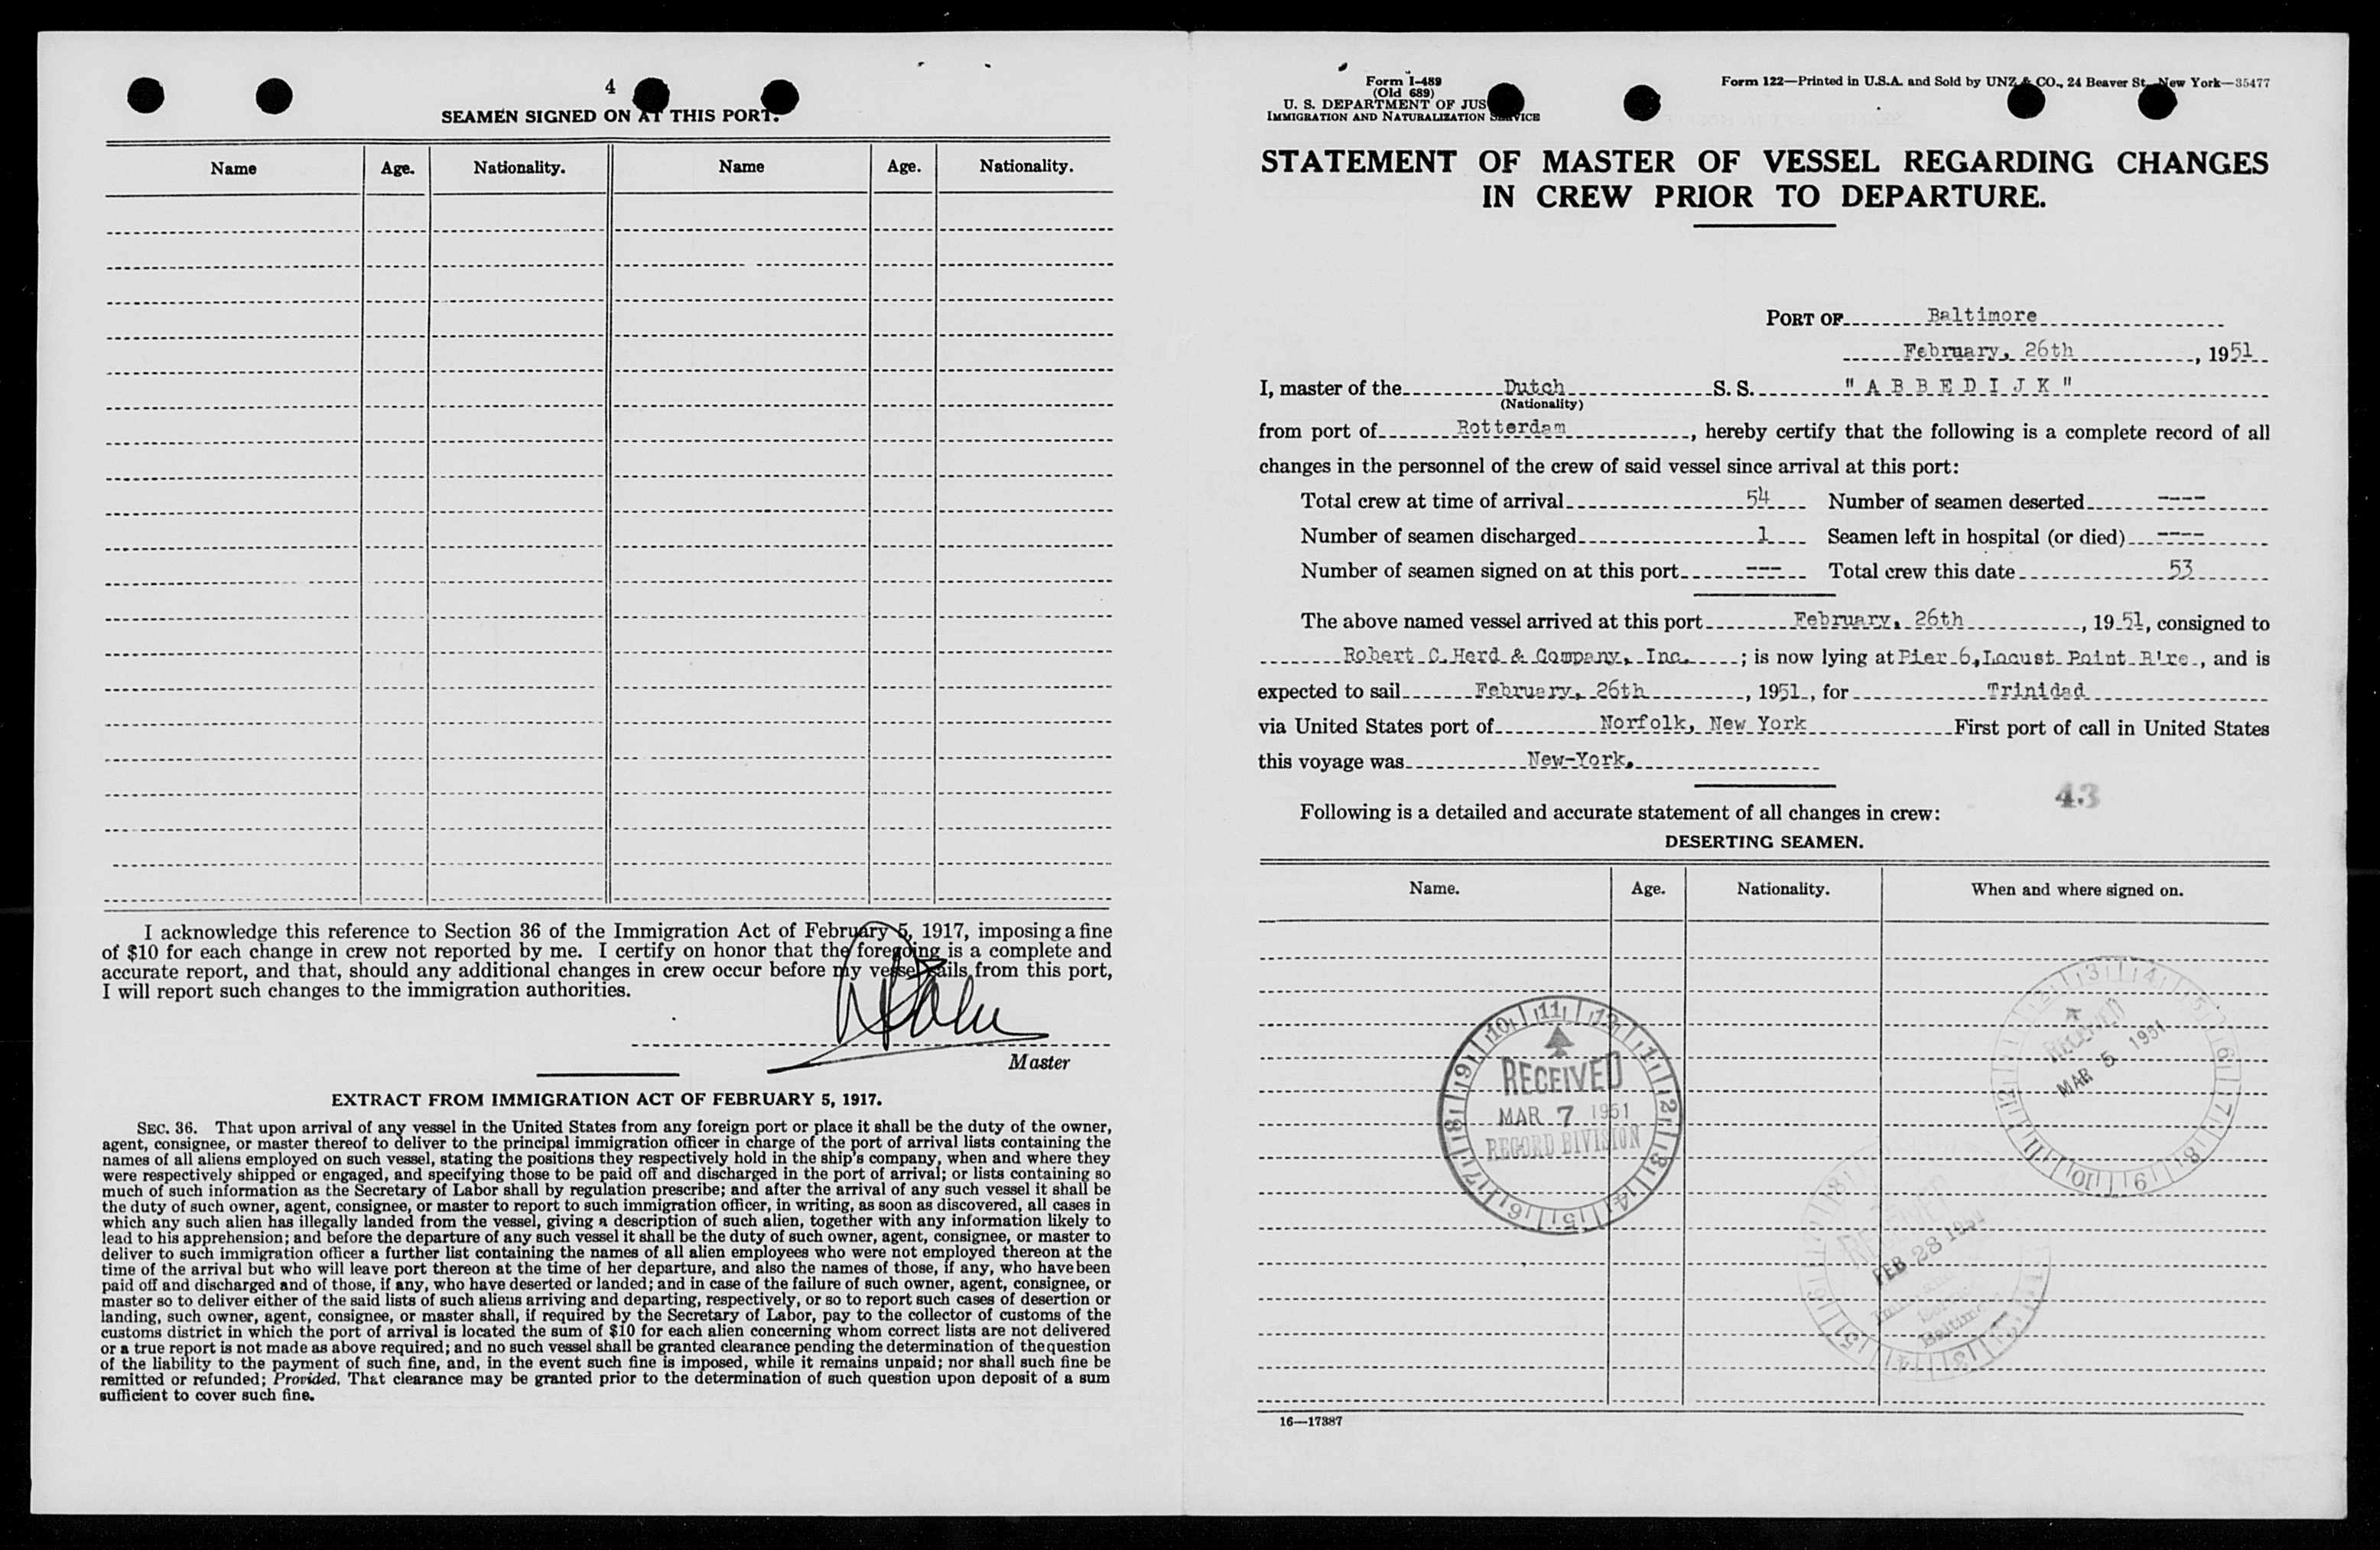 4
SEAMEN SIGNED ON AT THIS PORT.
Name Age. Nationality. Name Age. Nationality.
I acknowledge this reference to Section 36 of the Immigration Act of February 5, 1917, imposing a fine
of $10 for each change in crew not reported by me. I certify on honor that the foregoing is a complete and
accurate report, and that, should any additional changes in crew occur before my vessel sails from this port,
I will report such changes to the immigration authorities.
Master
EXTRACT FROM IMMIGRATION ACT OF FEBRUARY 5, 1917.
SEC. 36. That upon arrival of any vessel in the United States from any foreign port or place it shall be the duty of the owner,
agent, consignee, or master thereof to deliver to the principal immigration officer in charge of the port of arrival lists containing the
names of all aliens employed on such vessel, stating the positions they respectively hold in the ship's company, when and where they
were respectively shipped or engaged, and specifying those to be paid off and discharged in the port of arrival; or lists containing so
much of such information as the Secretary of Labor shall by regulation prescribe; and after the arrival of any such vessel it shall be
the duty of such owner, agent, consignee, or master to report to such immigration officer, in writing, as soon as discovered, all cases in
which any such alien has illegally landed from the vessel, giving a description of such alien, together with any information likely to
lead to his apprehension; and before the departure of any such vessel it shall be the duty of such owner, agent, consignee, or master to
deliver to such immigration officer a further list containing the names of all alien employees who were not employed thereon at the
time of the arrival but who will leave port thereon at the time of her departure, and also the names of those, if any, who have been
paid off and discharged and of those, if any, who have deserted or landed; and in case of the failure of such owner, agent, consignee, or
master so to deliver either of the said lists of such aliens arriving and departing, respectively, or so to report such cases of desertion or
landing, such owner, agent, consignee, or master shall, if required by the Secretary of Labor, pay to the collector of customs of the
customs district in which the port of arrival is located the sum of $10 for each alien concerning whom correct lists are not delivered
or a true report is not made as above required; and no such vessel shall be granted clearance pending the determination of the question
of the liability to the payment of such fine, and, in the event such fine is imposed, while it remains unpaid; nor shall such fine be
remitted or refunded; Provided, That clearance may be granted prior to the determination of such question upon deposit of a sum
sufficient to cover such fine.
Form I-489
(Old 689)
U. S. DEPARTMENT OF JUS
IMMIGRATION AND NATURALIZATION SERVICE
Form 122—Printed in U.S.A. and Sold by UNZ & CO., 24 Beaver St., New York—35477
STATEMENT OF MASTER OF VESSEL REGARDING CHANGES
IN CREW PRIOR TO DEPARTURE.
PORT OF Baltimore
February, 26th, 1951
I, master of the Dutch S. S. " A B B E D I J K "
(Nationality)
from port of Rotterdam, hereby certify that the following is a complete record of all
changes in the personnel of the crew of said vessel since arrival at this port:
Total crew at time of arrival 54 Number of seamen deserted ----
Number of seamen discharged 1 Seamen left in hospital (or died) ----
Number of seamen signed on at this port --- Total crew this date 53
The above named vessel arrived at this port February, 26th, 1951, consigned to
Robert C. Herd & Company, Inc. ; is now lying at Pier 6, Locust Point B're, and is
expected to sail February, 26th, 1951, for Trinidad
via United States port of Norfolk, New York First port of call in United States
this voyage was New-York.
43
Following is a detailed and accurate statement of all changes in crew:
DESERTING SEAMEN.
Name. Age. Nationality. When and where signed on.
RECEIVED
MAR 5 1951
RECEIVED
MAR 7 1951
RECORD DIVISION
FEB 28 1951
Baltimore
16—17387